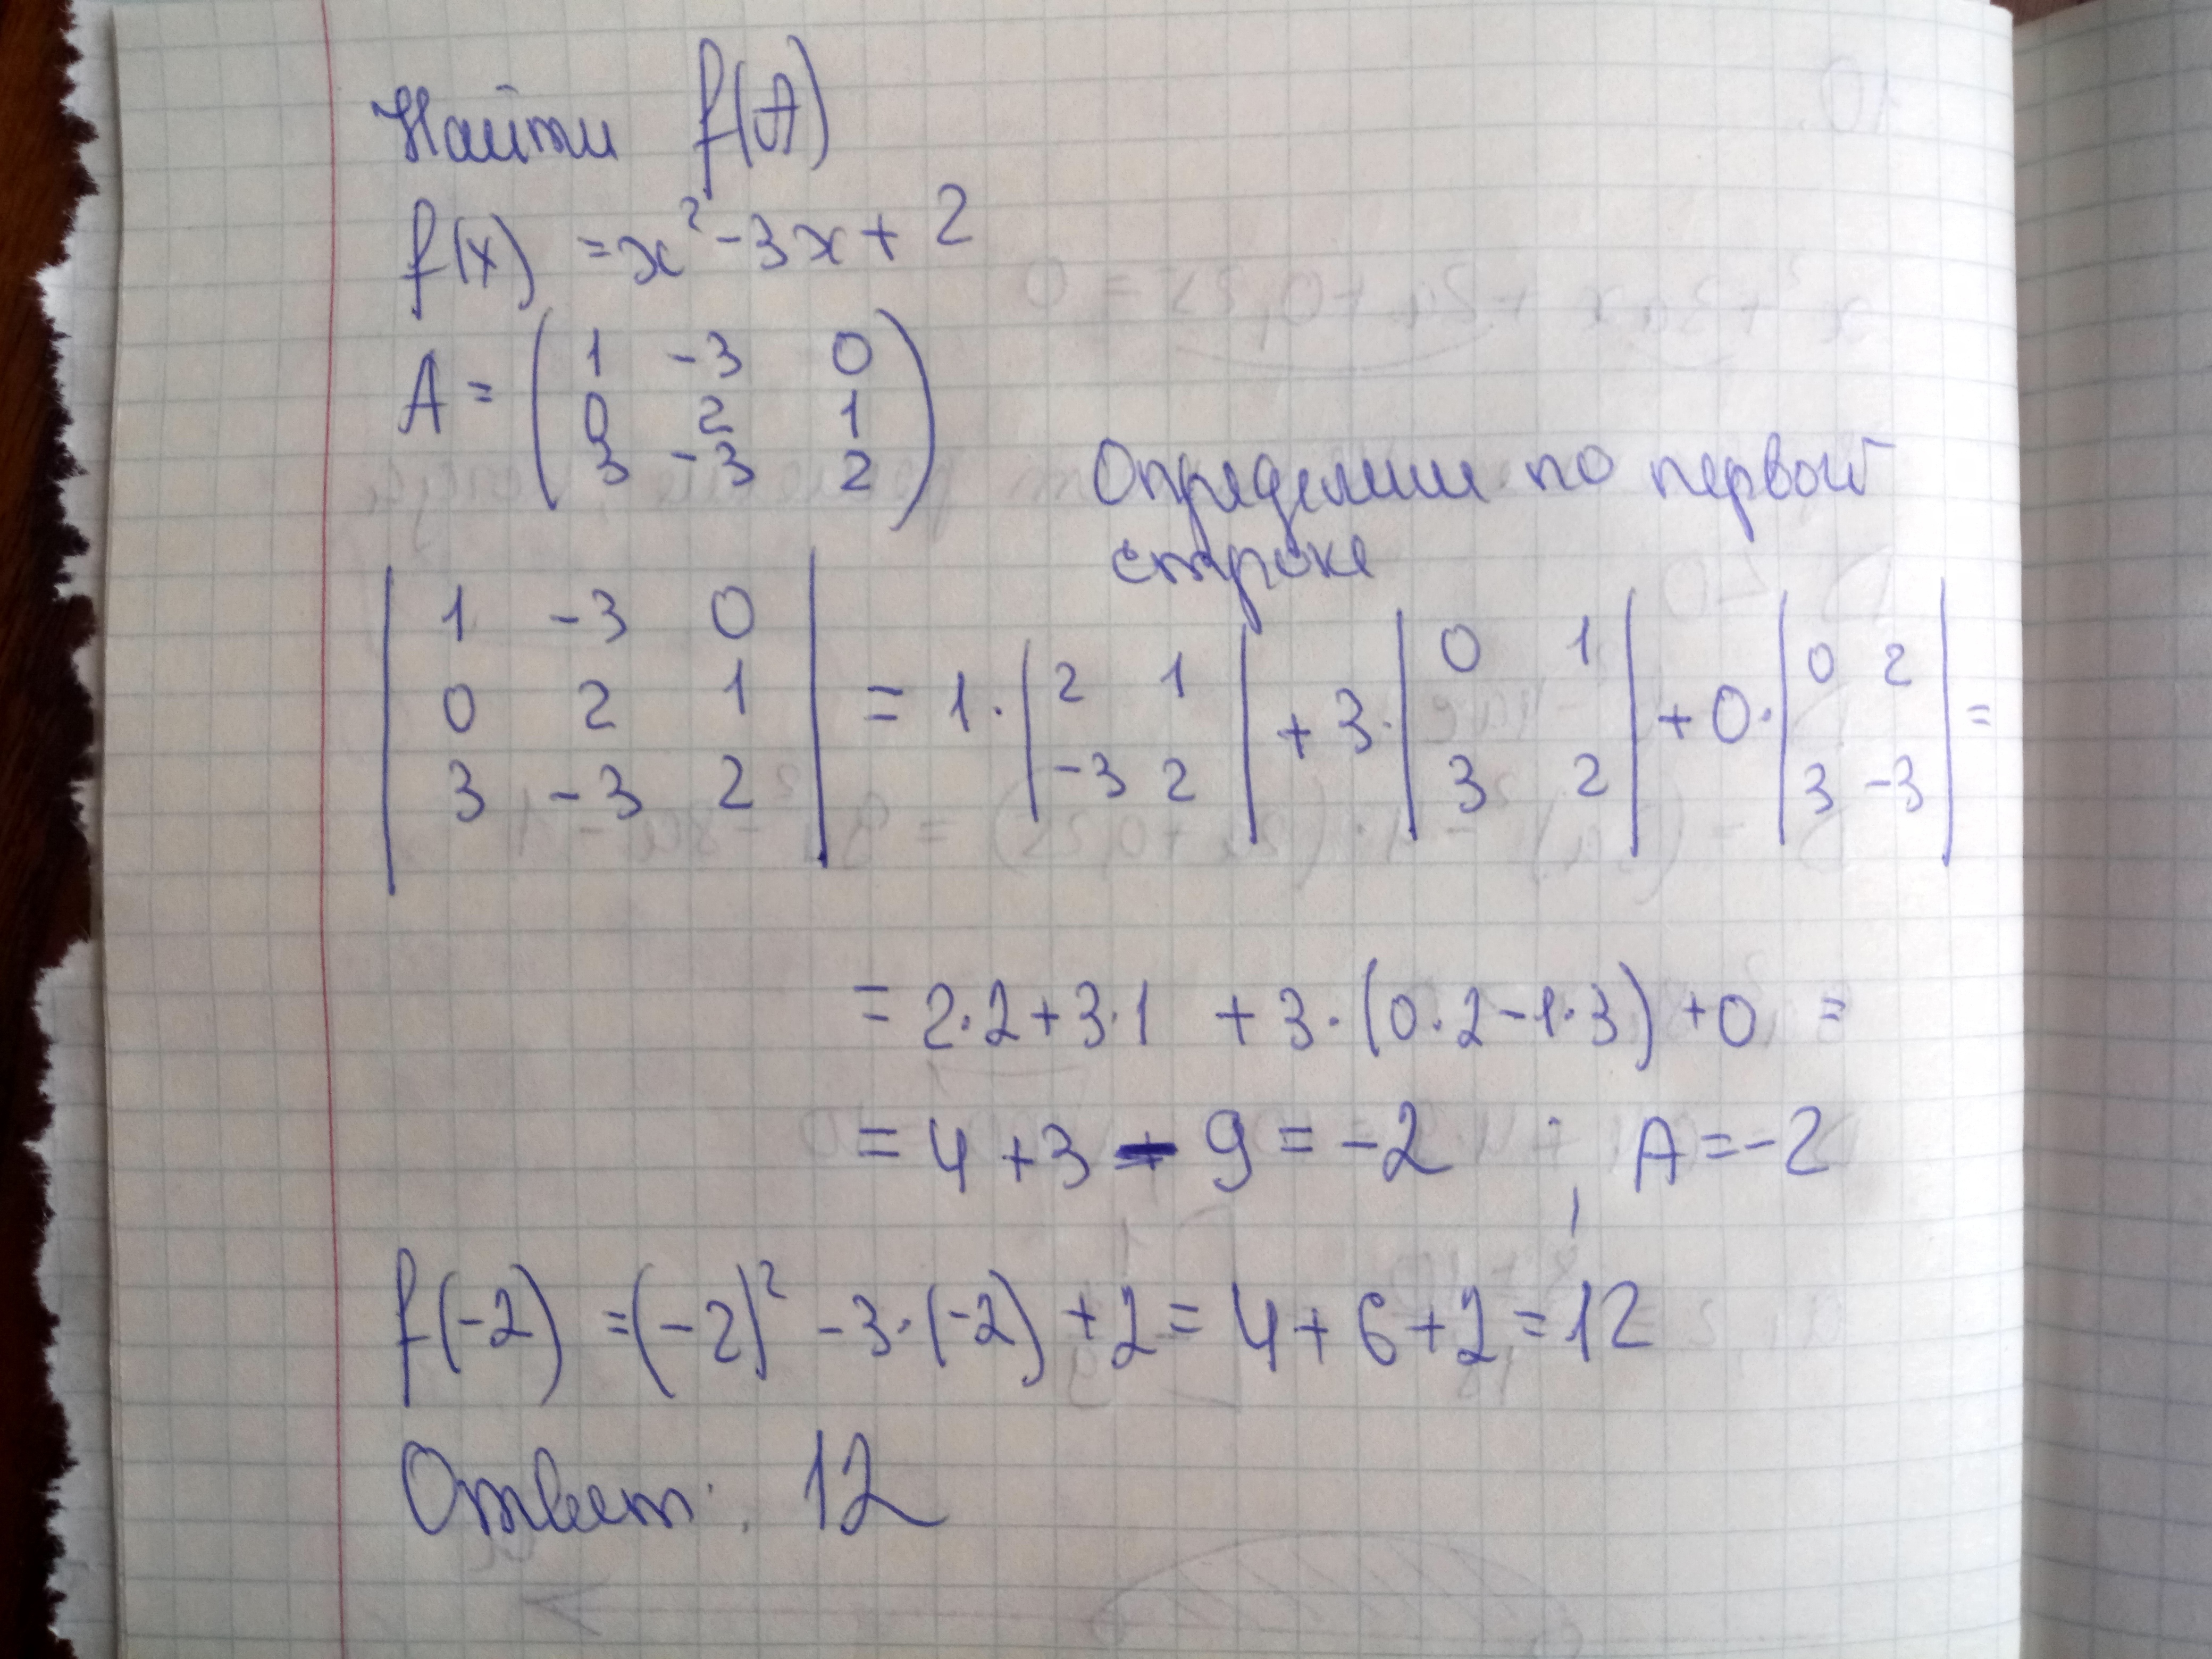 Найти f(A)
f(x) = x² - 3x + 2
A = ( 1 -3 0
0 2 1
3 -3 2 )
Определим по первой
строке
| 1 -3 0 |
| 0 2 1 | = 1 · | 2 1 | + 3 · | 0 1 | + 0 · | 0 2 | =
| 3 -3 2 | | -3 2 | | 3 2 | | 3 -3 |
= 2·2+3·1 + 3·(0·2-1·3) + 0 =
= 4 + 3 - 9 = -2 ; A = -2
f(-2) = (-2)² - 3·(-2) + 2 = 4 + 6 + 2 = 12
Ответ: 12